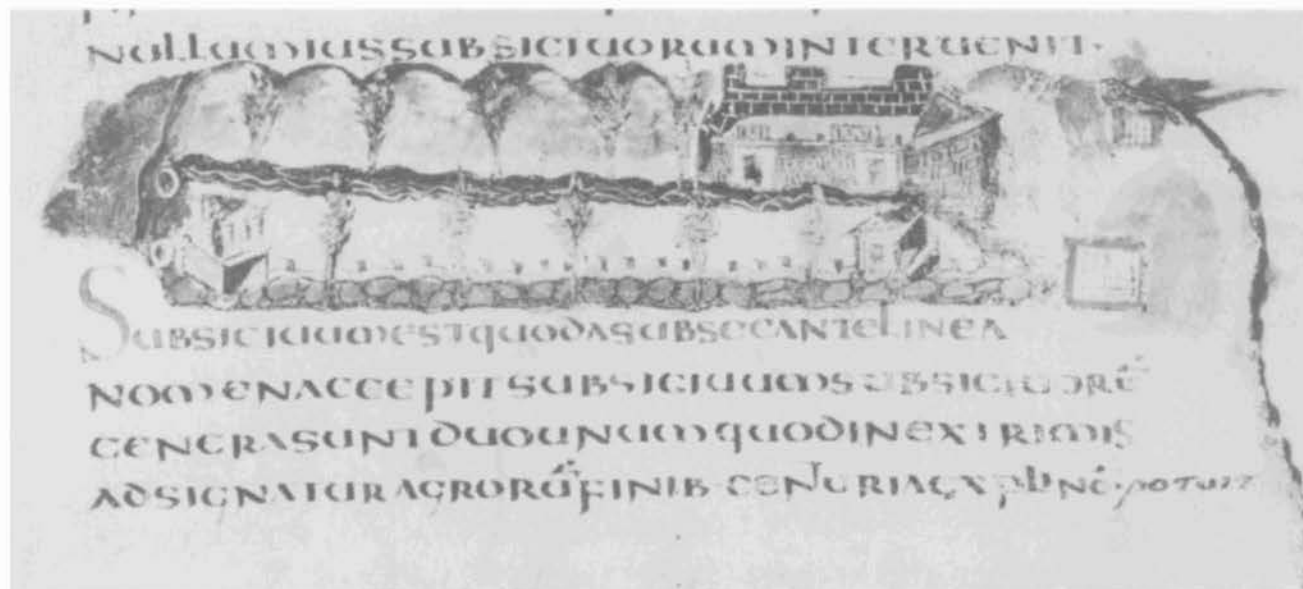 NULLUMIUSSUBSICIUORUMINTERUENIT·
SUBSICIUUMESTQUODASUBSECANTELINEA
NOMENACCEPITSUBSICIUUMSUBSICIUORU
GENERASUNTDUOUNUMQUODINEXTREMIS
ADSIGNATURAGRORUFINIB·CENTURIA